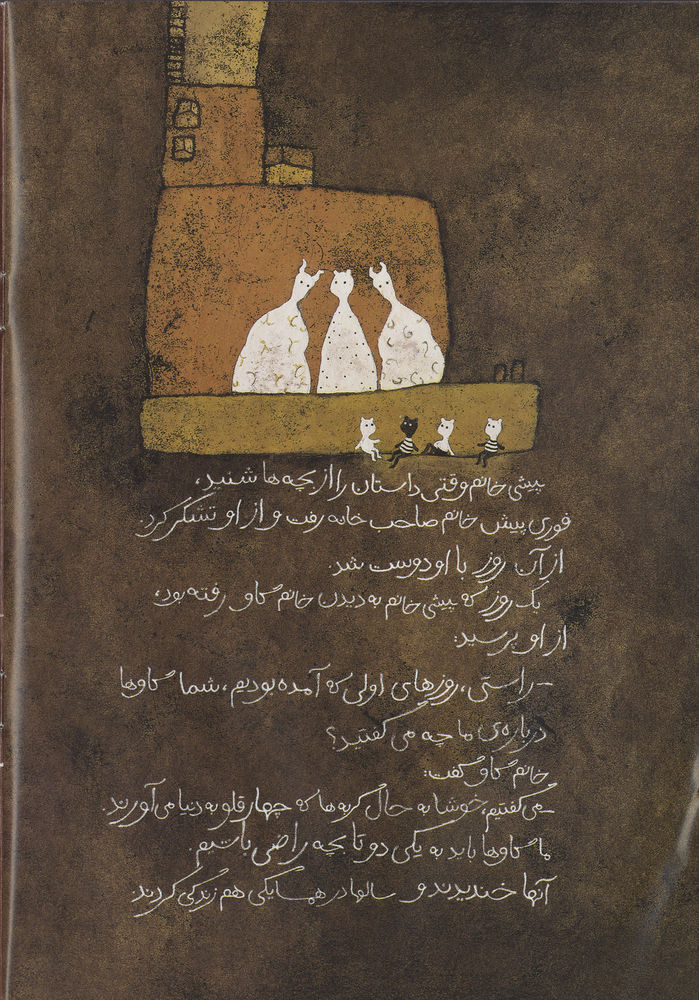 پیشی خانم وقتی داستان را از بچه‌ها شنید،
فوری پیش خانم صاحب خانه رفت و از او تشکر کرد.
از آن روز با او دوست شد.
یک روز که پیشی خانم به دیدن خانم گاو رفته بود،
از او پرسید:
- راستی، روزهای اولی که آمده بودیم، شما گاوها
درباره‌ی ما چه می‌گفتید؟
خانم گاو گفت:
- می‌گفتیم، خوشا به حال گربه‌ها که چهار قلو به دنیا می‌آورند.
ما گاوها باید به یکی دو تا بچه راضی باشیم.
آنها خندیدند و سالها در همسایگی هم زندگی کردند.